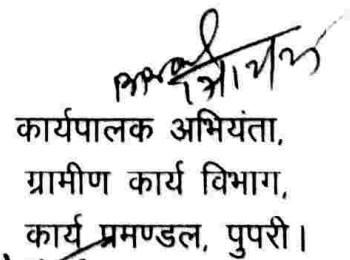 कार्यपालक अभियंता,
ग्रामीण कार्य विभाग,
कार्य प्रमण्डल, पुपरी।